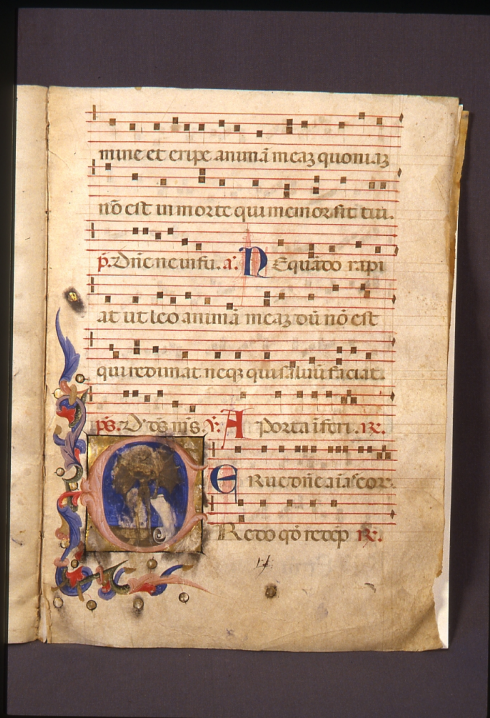 mine et eripe animã meaʒ quoniaʒ
nõ est in morte qui memor sit tui.
p̃. Dñe ne in fu. a᷉. N Equãdo rapi
at ut leo animã meaʒ dũ nõ est
qui redimat neqʒ qui saluũ faciat.
ps. D'ds ms. V. A Porta ĩferi. R.
E Rue dñe aĩas eor.
C Redo qð redẽp R.